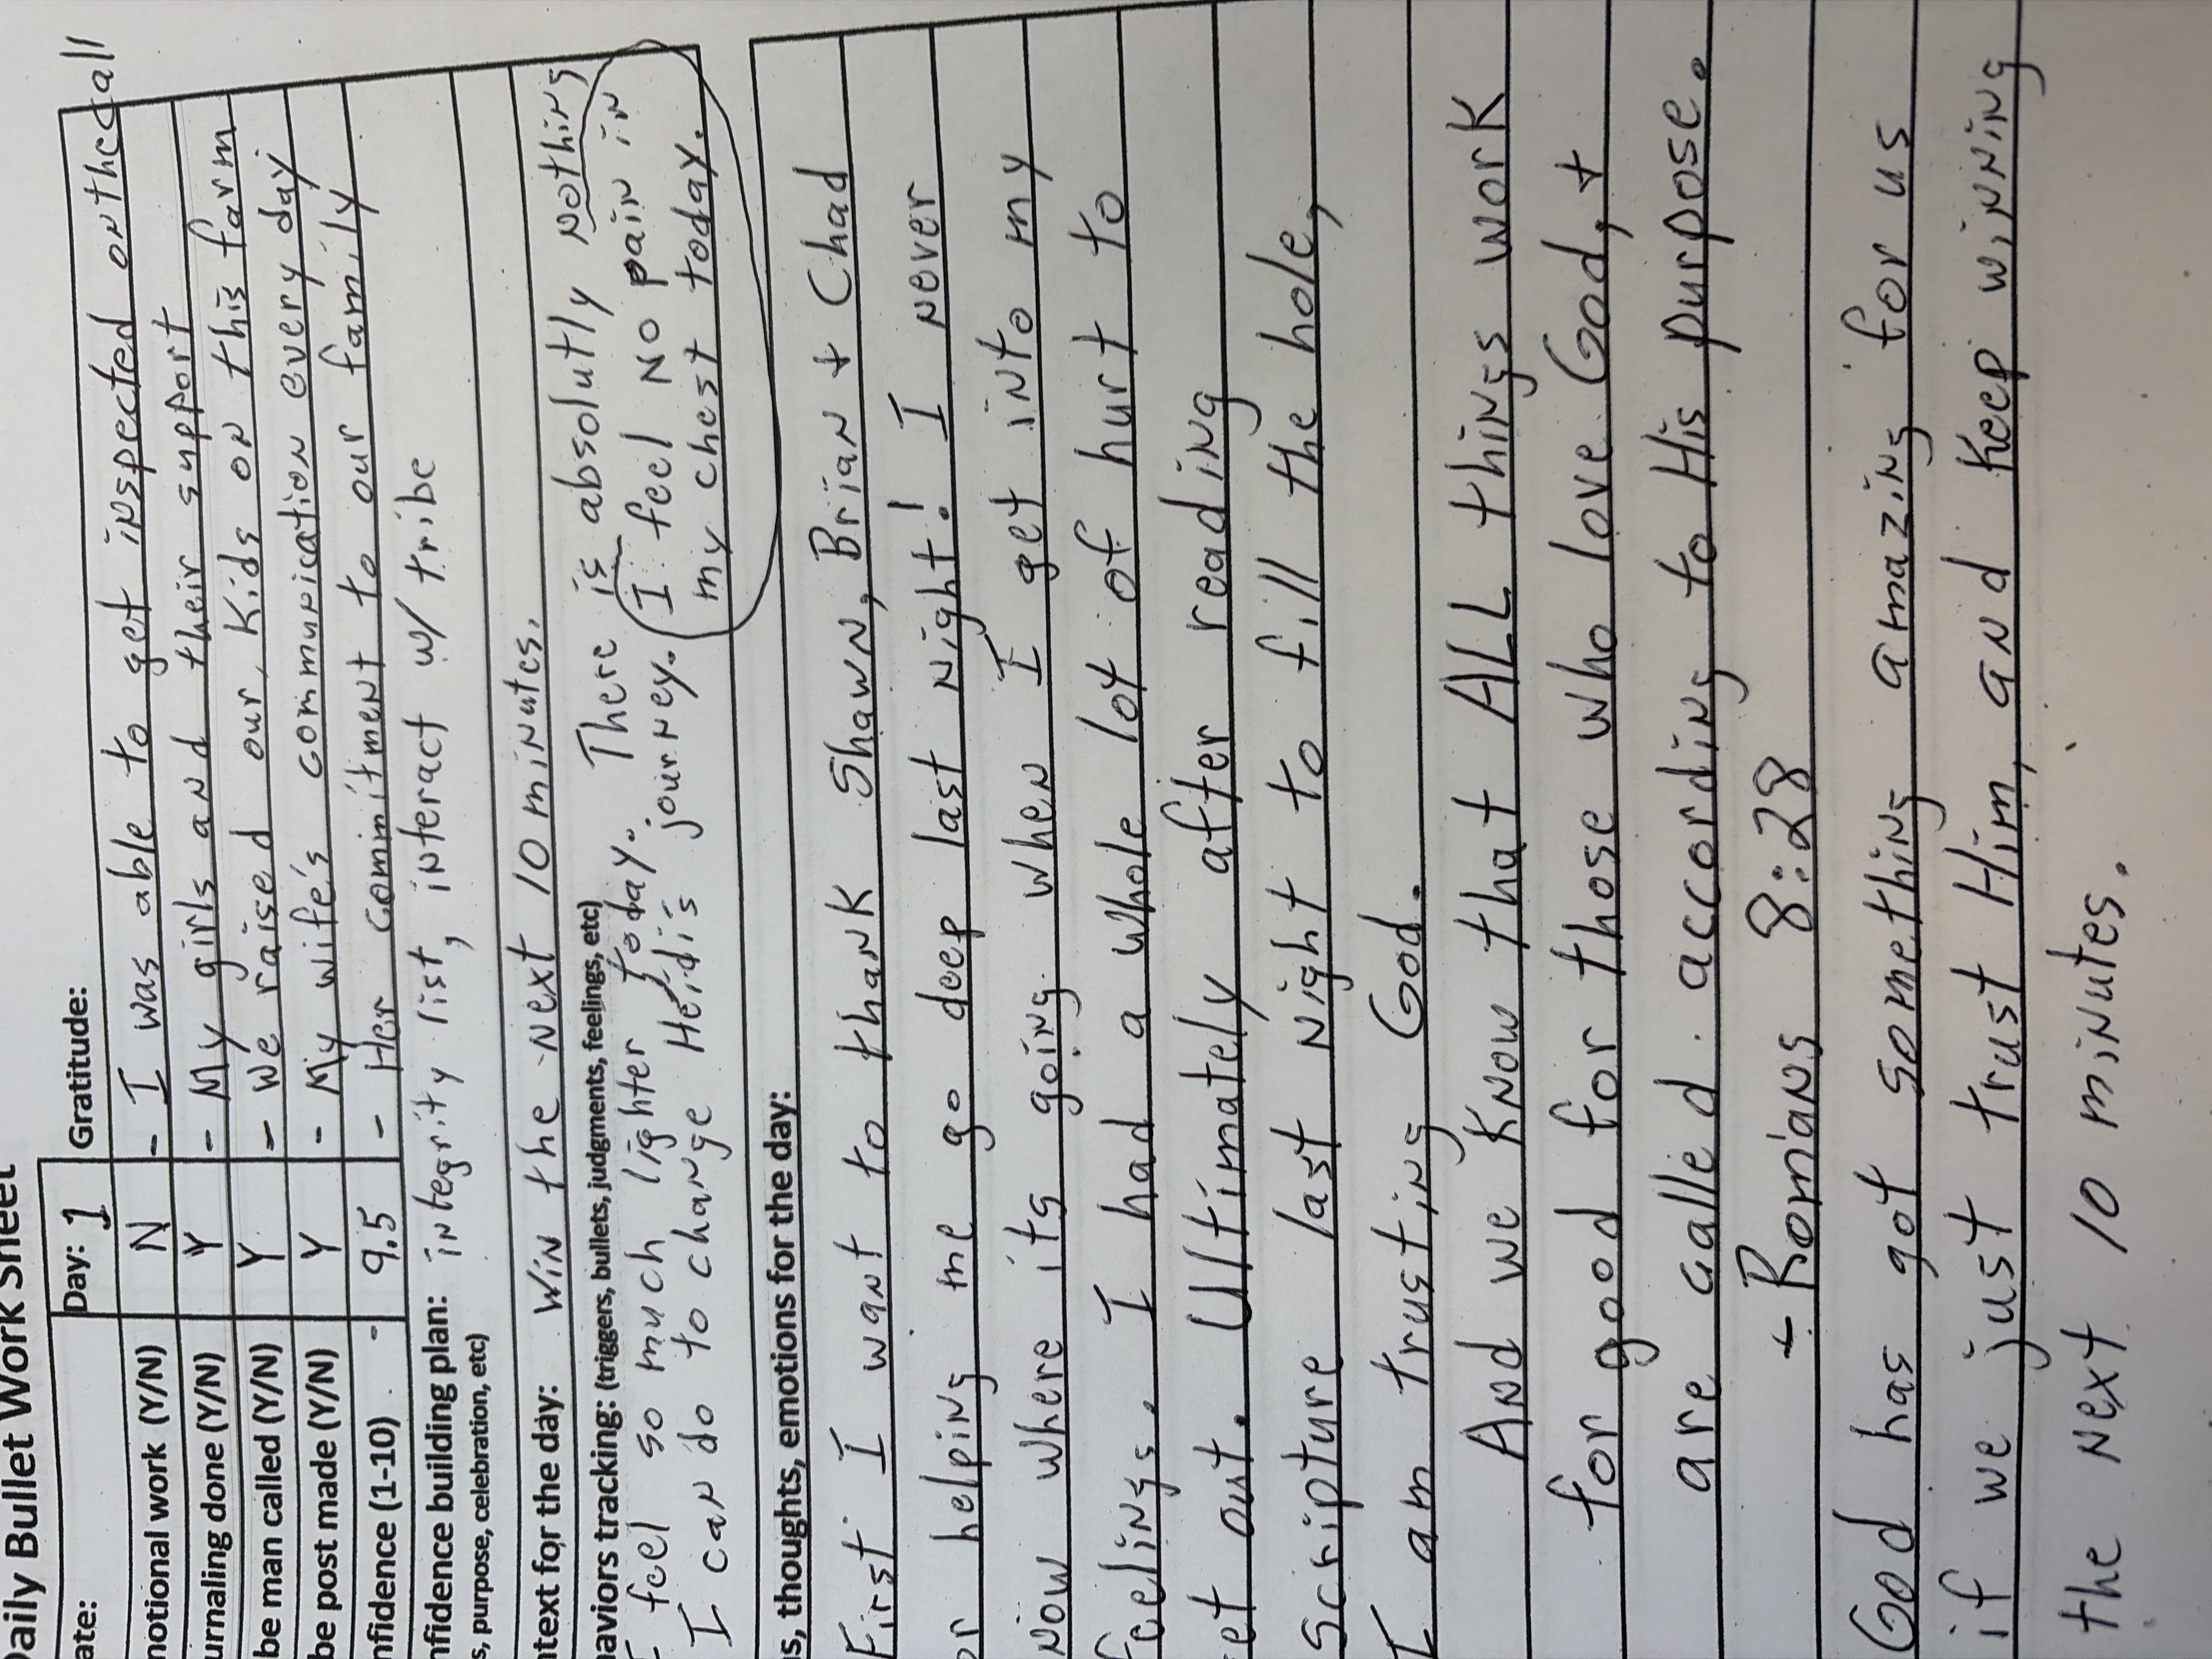 Daily Bullet Work Sheet
ate: Day: 1 Gratitude:
notional work (Y/N) N - I was able to get inspected on the call
urnaling done (Y/N) Y - My girls and their support
be man called (Y/N) Y - We raised our kids on this farm
be post made (Y/N) Y - My wife's communication every day
nfidence (1-10) 9.5 - Her commitment to our family
nfidence building plan: integrity list, interact w/ tribe
s, purpose, celebration, etc)
ntext for the day: Win the next 10 minutes.
haviors tracking: (triggers, bullets, judgments, feelings, etc)
I feel so much lighter today. There is absolutly nothing
I can do to change Heidis journey.
I feel NO pain in
my chest today.
s, thoughts, emotions for the day:
First I want to thank Shawn, Brian + Chad
or helping me go deep last night! I never
now where its going when I get into my
feelings. I had a whole lot of hurt to
et out. Ultimately after reading
scripture last night to fill the hole,
I am trusting God.
And we know that ALL things work
for good for those who love God, +
are called according to His purpose.
- Romians 8:28
God has got something amazing for us
if we just trust Him, and keep winning
the next 10 minutes.